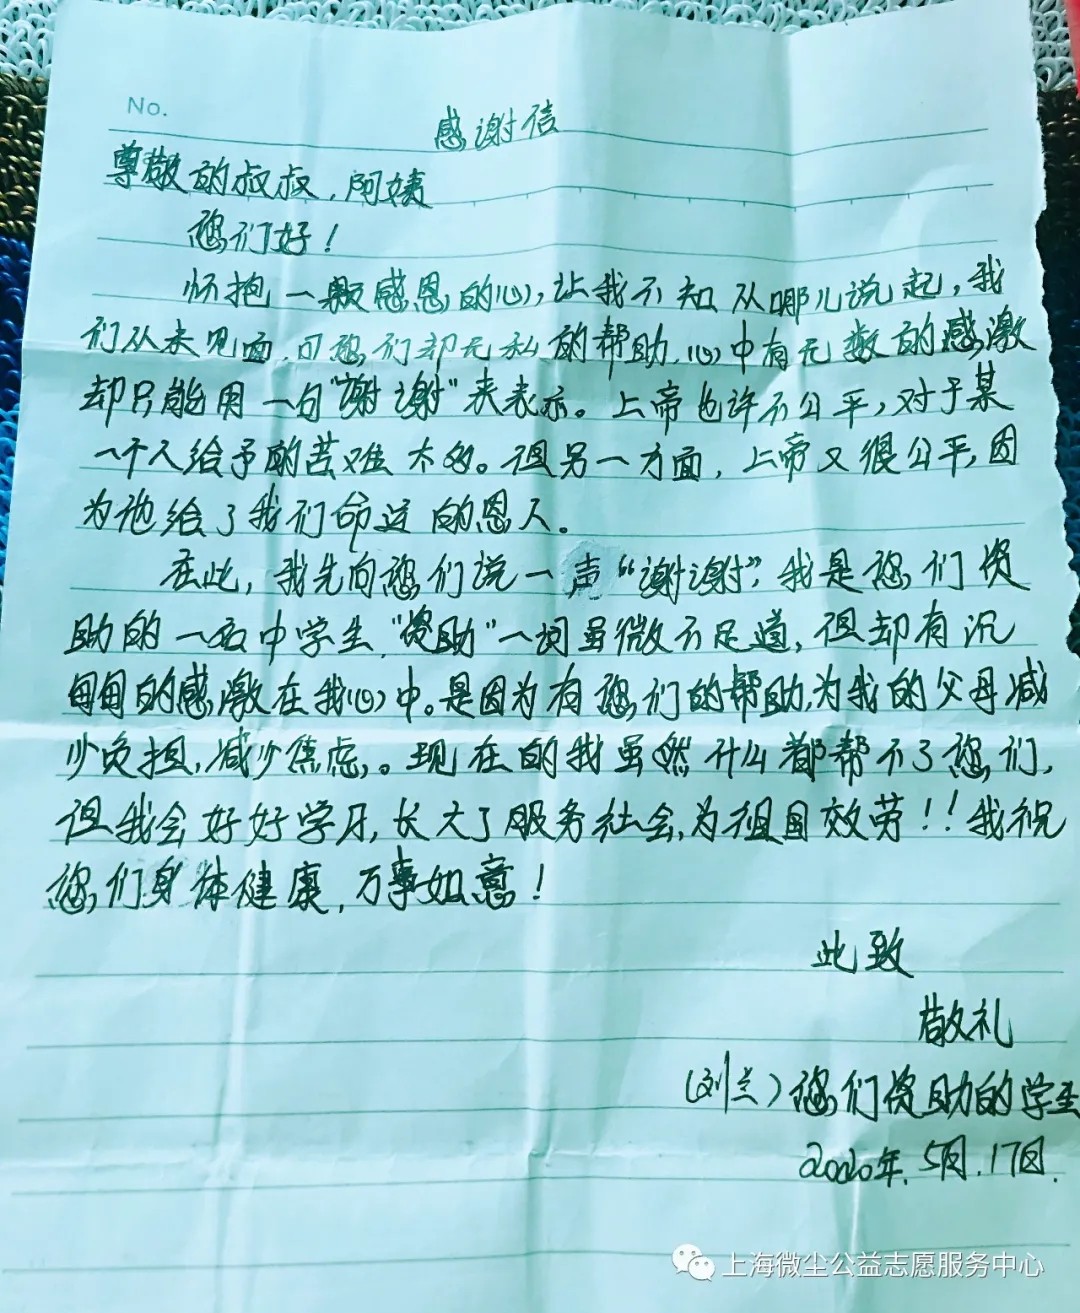 No.
感谢信
尊敬的叔叔，阿姨
您们好！
怀抱一颗感恩的心，让我不知从哪儿说起，我
们从未见面，可您们却无私的帮助，心中有无数的感激
却只能用一句“谢谢”来表示。上帝也许不公平，对于某
一个人给予的苦难太多。但另一方面，上帝又很公平，因
为他给了我们命运的恩人。
在此，我先向您们说一声“谢谢”，我是您们资
助的一名中学生，“资助”一词虽微不足道，但却有沉
甸甸的感激在我心中。是因为有您们的帮助，为我的父母减
少负担，减少焦虑。现在的我虽然什么都帮不了您们，
但我会好好学习，长大了服务社会，为祖国效劳！！我祝
您们身体健康，万事如意！
此致
敬礼
（刘兰）您们资助的学生
2020年.5月.17日.
上海微尘公益志愿服务中心